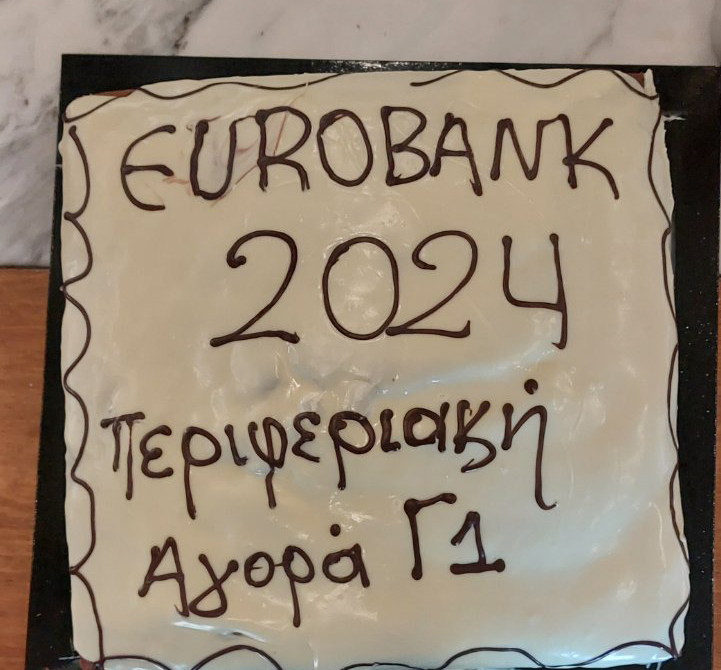 EUROBANK
2024
περιφεριακή
Αγορά Γ1